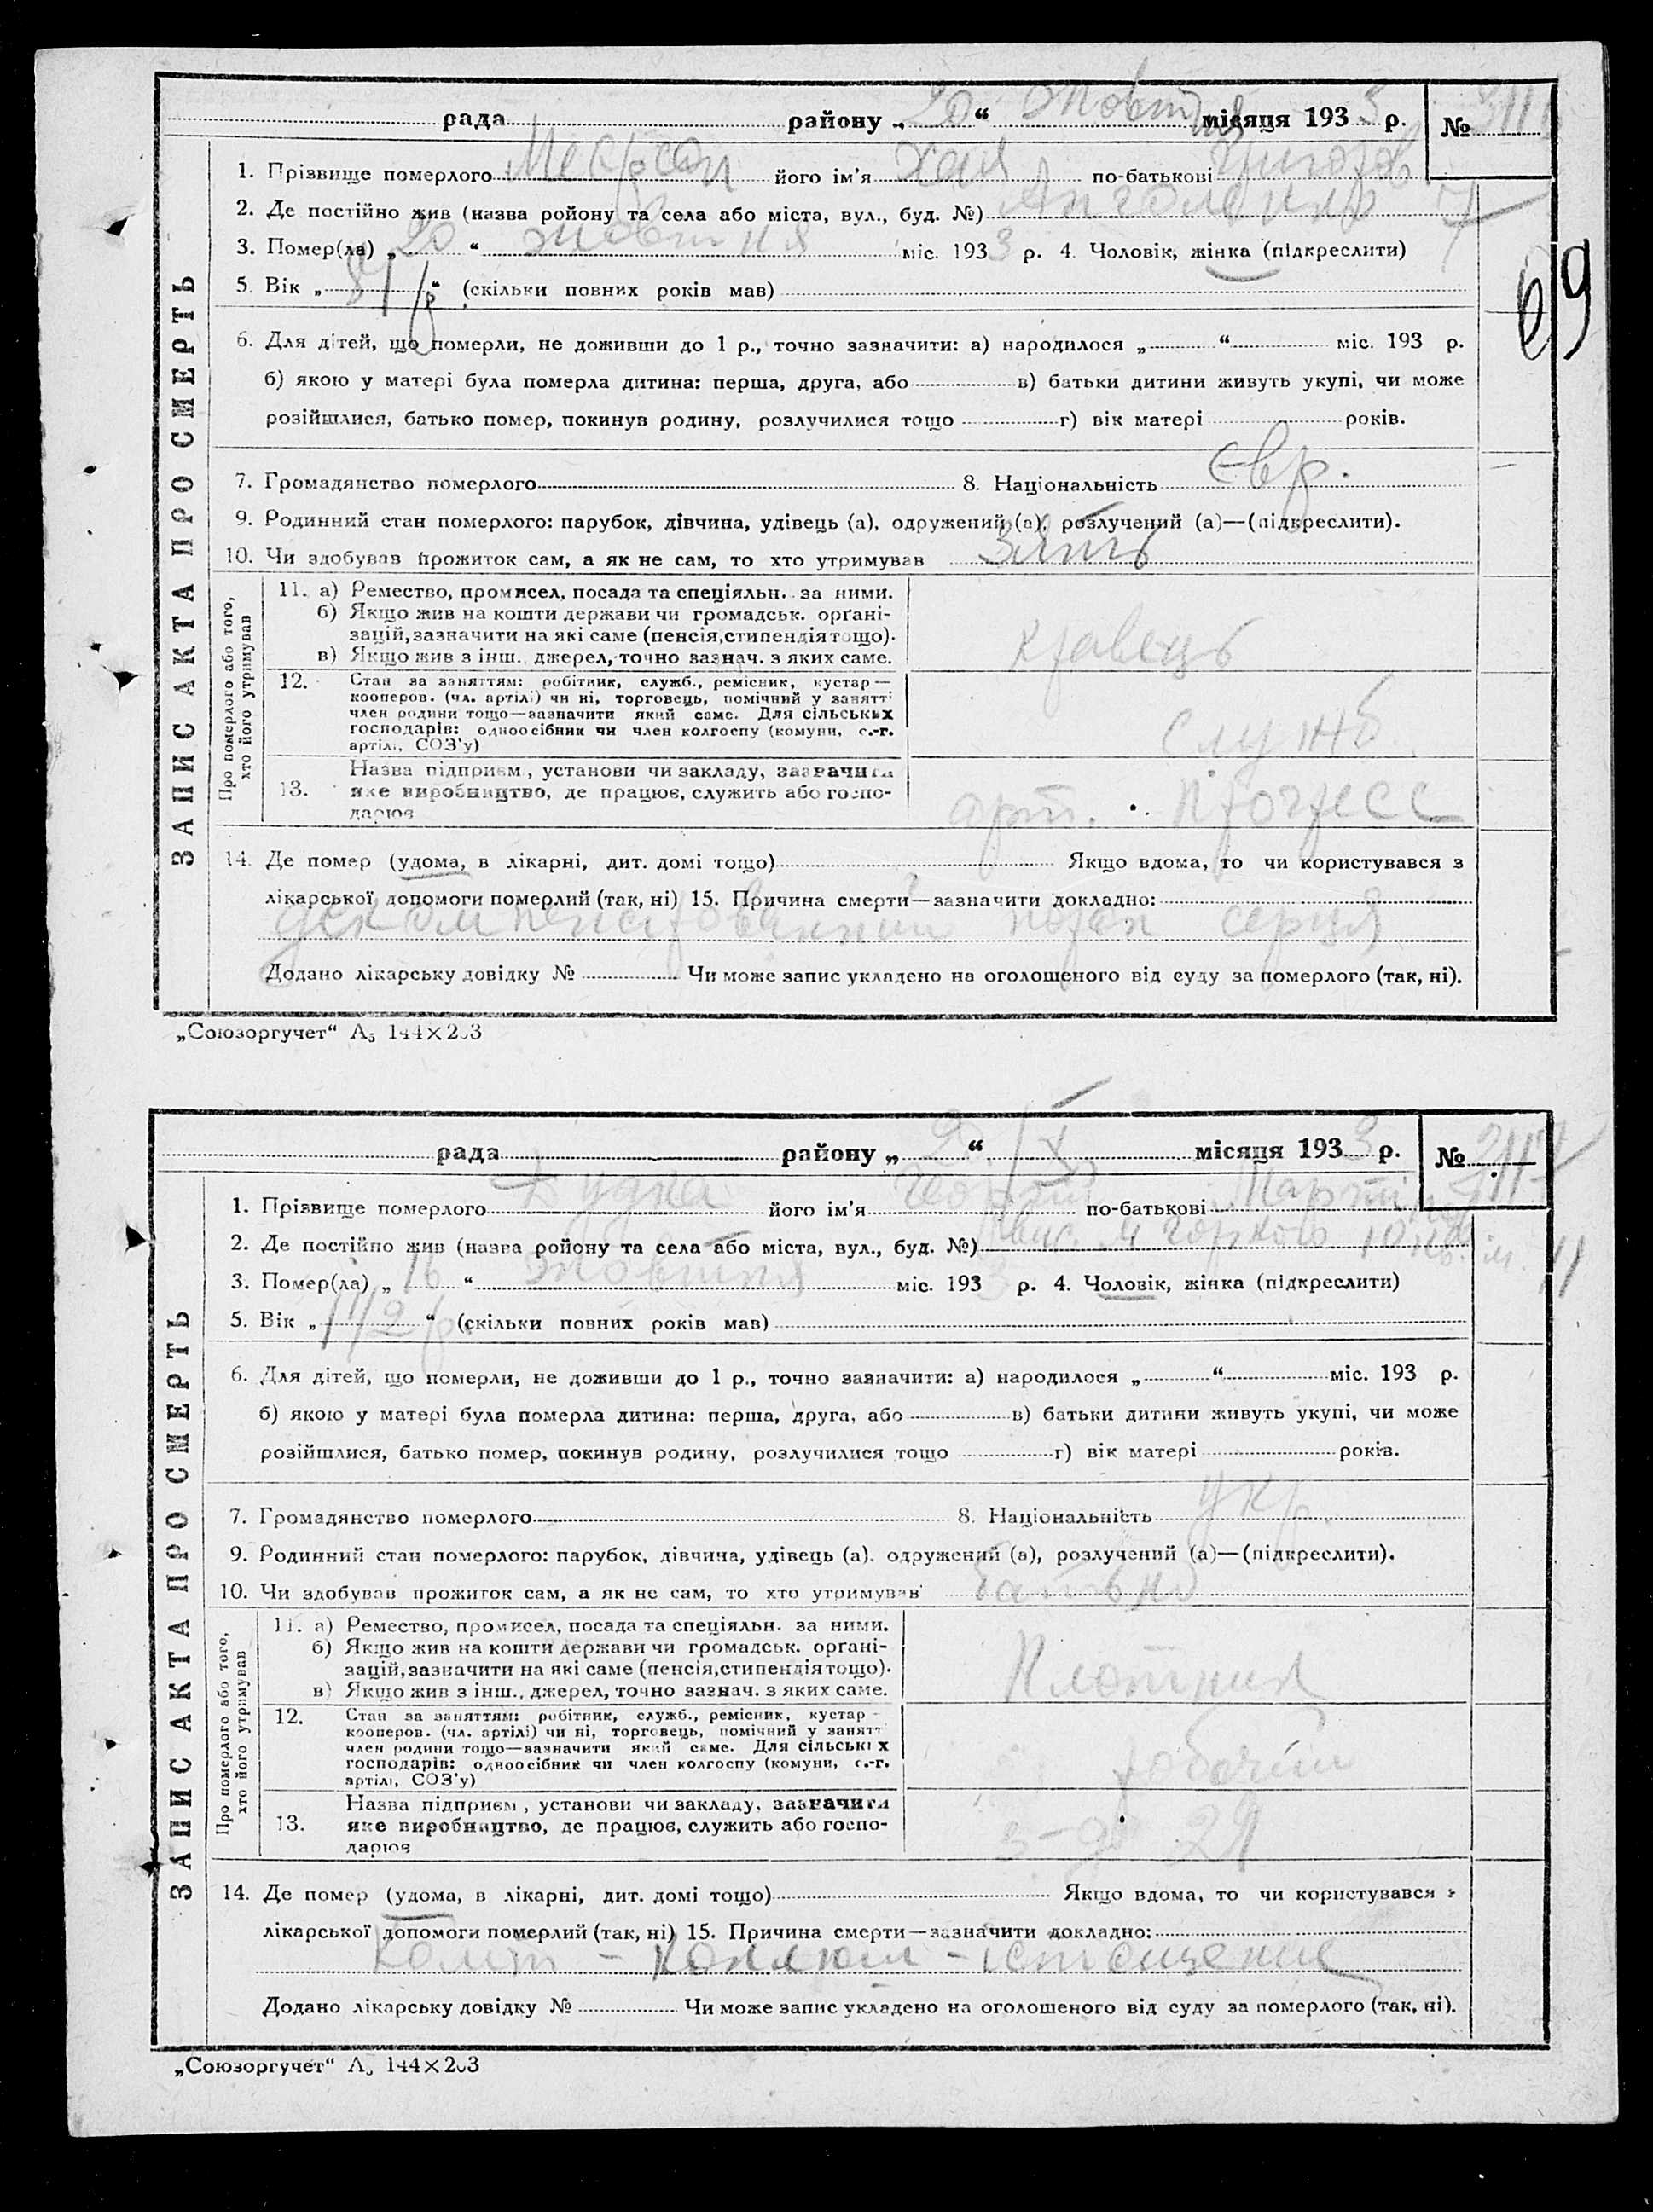 рада району „ 20 “ Жовтня місяця 1933 р. №
1. Прізвище померлого його ім'я Хая по-батькові Григоров
2. Де постійно жив (назва ройону та села або міста, вул., буд. №)
3. Помер(ла) „ 20 “ жовтня міс. 1933 р. 4. Чоловік, жінка (підкреслити)
69
5. Вік „ 81 р “ (скільки повних років мав)
6. Для дітей, що померли, не доживши до 1 р., точно зазначити: а) народилося „ “ міс. 193 р.
б) якою у матері була померла дитина: перша, друга, або в) батьки дитини живуть укупі, чи може
розійшлися, батько помер, покинув родину, розлучилися тощо г) вік матері років.
7. Громадянство померлого 8. Національність Євр.
9. Родинний стан померлого: парубок, дівчина, удівець (а), одружений (а), розлучений (а)—(підкреслити).
10. Чи здобував прожиток сам, а як не сам, то хто утримував Зять
ЗАПИС АКТА ПРО СМЕРТЬ
Про померлого або того,
хто його утримував
11. а) Ремество, промисел, посада та спеціяльн. за ними.
б) Якщо жив на кошти держави чи громадськ. орґані-
зацій, зазначити на які саме (пенсія, стипендія тощо).
в) Якщо жив з інш. джерел, точно зазнач. з яких саме.
кравець
12. Стан за заняттям: робітник, служб., ремісник, кустар—
кооперов. (чл. артілі) чи ні, торговець, помічний у занятті
член родини тощо—зазначити який саме. Для сільських
господарів: одноосібник чи член колгоспу (комуни, с.-г.
артілі, СОЗ'у)
служб.
13. Назва підприєм., установи чи закладу, зазначити
яке виробництво, де працює, служить або госпо-
дарює
арт. Прогресс
14. Де помер (удома, в лікарні, дит. домі тощо) Якщо вдома, то чи користувався з
лікарської допомоги померлий (так, ні) 15. Причина смерти—зазначити докладно:
декомпенсірованний порок серця
Додано лікарську довідку № Чи може запис укладено на оголошеного від суду за померлого (так, ні).
„Союзоргучет“ А5 144×203
рада району „ 20 “ X місяця 1933 р. № 3117
1. Прізвище померлого Дудка його ім'я Георгій по-батькові Мартінов
2. Де постійно жив (назва ройону та села або міста, вул., буд. №) М Горького 10
3. Помер(ла) „ 16 “ жовтня міс. 1933 р. 4. Чоловік, жінка (підкреслити)
5. Вік „ 1 1/2 р “ (скільки повних років мав)
6. Для дітей, що померли, не доживши до 1 р., точно зазначити: а) народилося „ “ міс. 193 р.
б) якою у матері була померла дитина: перша, друга, або в) батьки дитини живуть укупі, чи може
розійшлися, батько помер, покинув родину, розлучилися тощо г) вік матері років.
7. Громадянство померлого 8. Національність Укр.
9. Родинний стан померлого: парубок, дівчина, удівець (а), одружений (а), розлучений (а)—(підкреслити).
10. Чи здобував прожиток сам, а як не сам, то хто утримував батько
ЗАПИС АКТА ПРО СМЕРТЬ
Про померлого або того,
хто його утримував
11. а) Ремество, промисел, посада та спеціяльн. за ними.
б) Якщо жив на кошти держави чи громадськ. орґані-
зацій, зазначити на які саме (пенсія, стипендія тощо).
в) Якщо жив з інш., джерел, точно зазнач. з яких саме.
Плотник
12. Стан за заняттям: робітник, служб., ремісник, кустар—
кооперов. (чл. артілі) чи ні, торговець, помічний у занятт
член родини тощо—зазначити який саме. Для сільських
господарів: одноосібник чи член колгоспу (комуни, с.-г.
артілі, СОЗ'у)
робочий
13. Назва підприєм., установи чи закладу, зазначити
яке виробництво, де працює, служить або госпо-
дарює
з-д 29
14. Де помер (удома, в лікарні, дит. домі тощо) Якщо вдома, то чи користувався з
лікарської допомоги померлий (так, ні) 15. Причина смерти—зазначити докладно:
Коліт - коклюш - істощеніє
Додано лікарську довідку № Чи може запис укладено на оголошеного від суду за померлого (так, ні).
„Союзоргучет“ А5 144×203